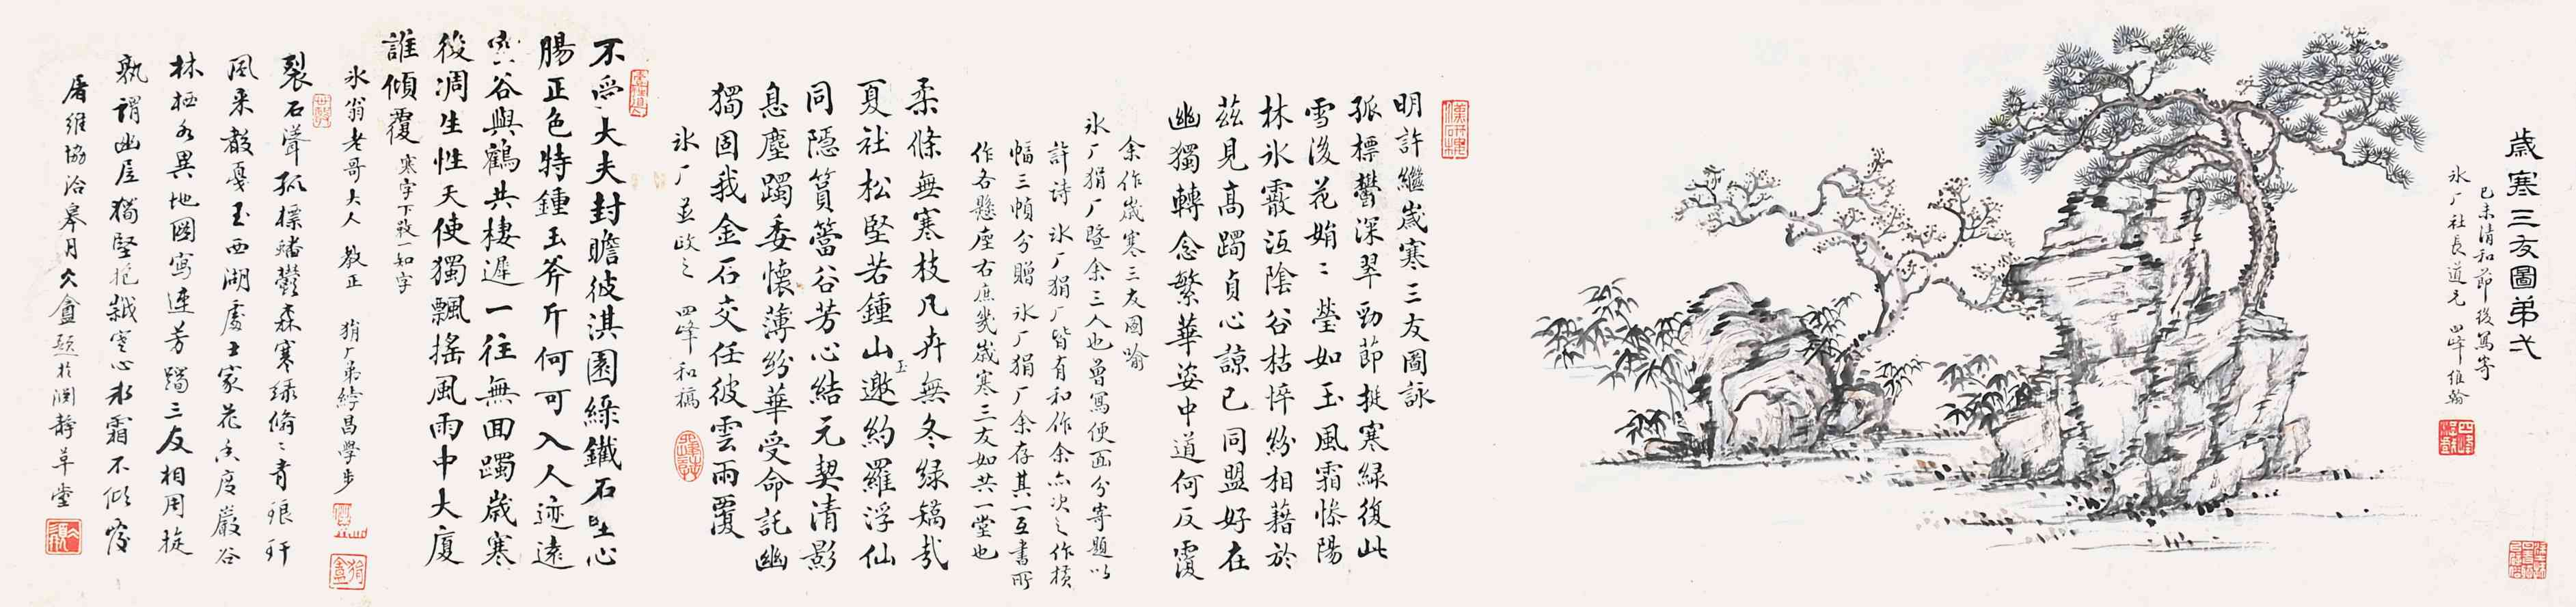 歲寒三友圖弟弍
己未清和節後寫寄
氷厂社長道兄 四峰維翰
明許繼歲寒三友圖詠
孤標鬱深翠勁節挺寒綠復此
雪後花娟〻瑩如玉風霜慘陽
林氷霰沍陰谷枯悴紛相藉於
茲見高躅貞心諒已同盟好在
幽獨轉念繁華姿中道何反覆
余作歲寒三友圖喻
氷厂狷厂暨余三人也曾寫便面分寄題以
許诗氷厂狷厂皆有和作余亦次之作橫
幅三幀分贈氷厂狷厂余存其一互書所
作各懸座右庶幾歲寒三友如共一堂也
柔條無寒枝凡卉無冬綠矯哉
夏社松堅若鍾山玉邀約羅浮仙
同隱篔簹谷芳心結元契清影
息塵躅委懷薄紛華受命託幽
獨固我金石交任彼雲雨覆
氷厂並政之 四峰和稿
不受大夫封瞻彼淇園綠鐵石堅心
腸正色特鍾玉斧斤何可入人迹遠
空谷與鶴共棲遲一往無回躅歲寒
後凋生性天使獨飄搖風雨中大廈
誰傾覆 寒字下敚一知字
氷翁老哥大人 教正 狷厂弟 昌學步
裂石聳孤標蟠鬱森寒绿脩〻青琅玕
風来散戛玉西湖處士家花香度巖谷
林栖各異地圖寫連芳躅三友相用旋
孰谓幽居獨堅抱歲寒心冰霜不傾覆
屠維協洽皋月 盦題於澗静草堂